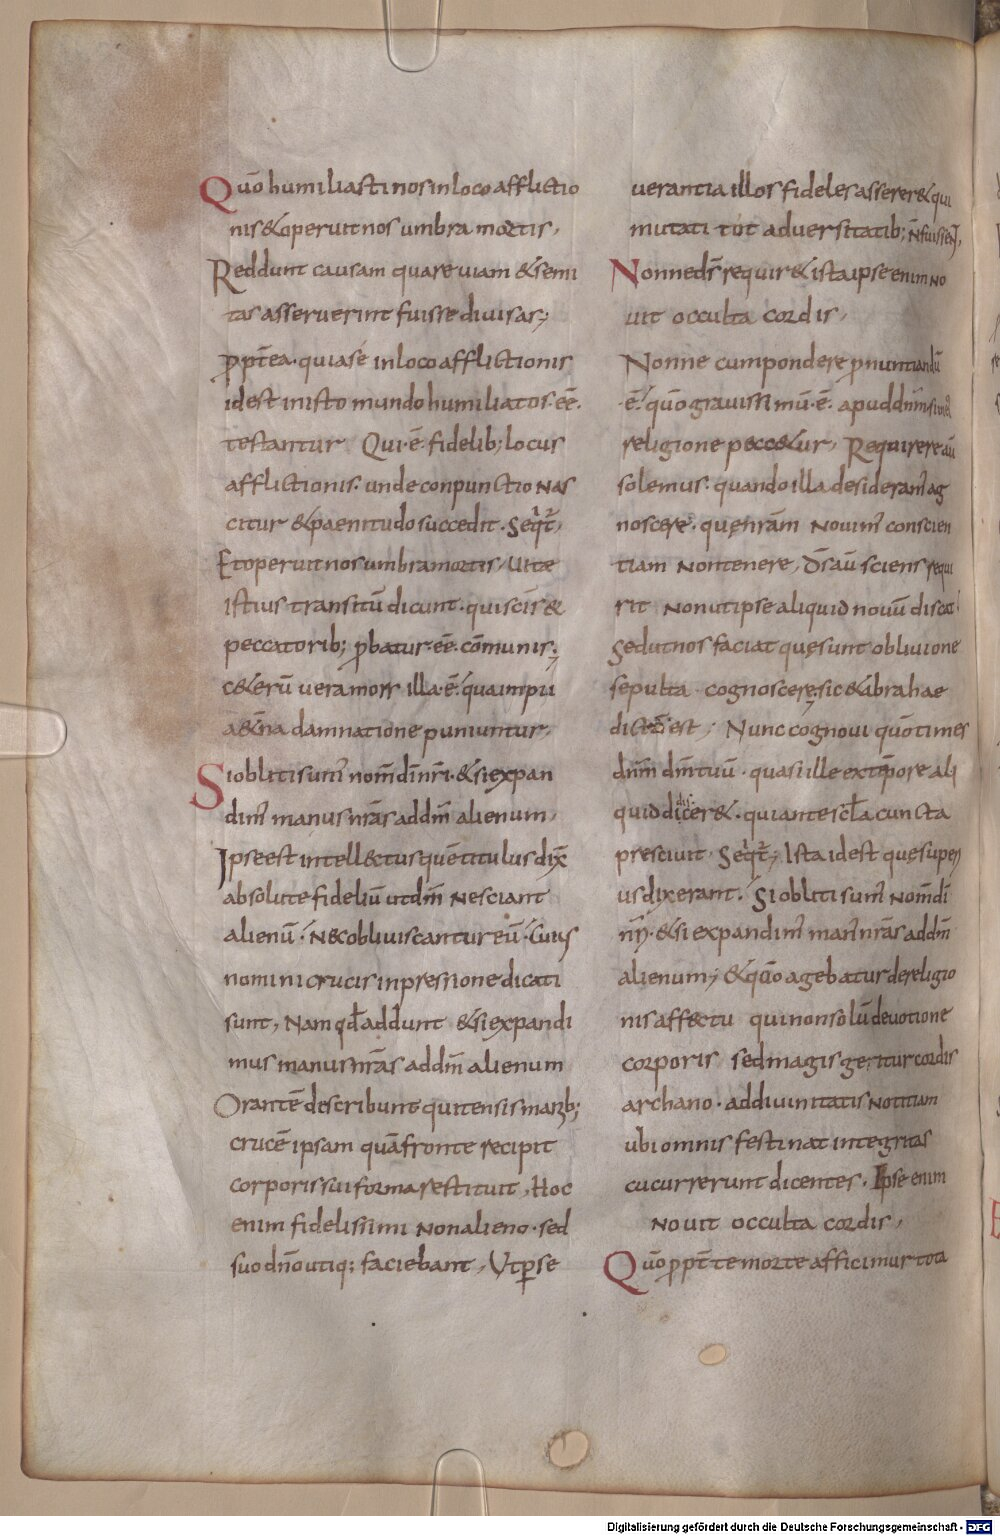 Quō humiliasti nos in loco afflictio
nis & operuit nos umbra mortis,
Reddunt causam quare uiam & semi
tas asseruerint fuisse diuisas;
ꝓpt̄ea· quia se in loco afflictionis
id est in isto mundo humiliatos· eē·
testantur Qui· ē· fidelib; locus
afflictionis· unde conpunctio nas
citur & paenitudo succedit· Seqt̄,
Et operuit nos umbra mortis, uite
istius transitū dicunt· qui scīs &
peccatorib; ꝓbatur· eē· cōmunis;
c&erū uera mors illa· ē· qua impii
a&ña damnatione puniuntur,
Si obliti sum' nom̄ dī nr̄i· & si expan
dim' manus nr̄as ad dm̄ alienum,
Ipse est intell&ctus quē titulus dix̄
absolute fideliū ut dm̄ nesciant
alienū· nec obliuiscantur eū· Cuius
nomini crucis inpressione dicati
sunt, Nam qd̄ addunt & si expandi
mus manus nr̄as ad dm̄ alienum
Orantē describunt qui tensis manib;
crucē ipsam quā fronte recipit
corporis sui forma restituit, Hoc
enim fidelissimi non alieno· sed
suo dn̄o utiq; faciebant, Ut ꝑse
uerantia illos fideles asserer& qui
mutati tot aduersitatib; ñ fuissen̄t,
Nonne ds̄ requir& ista ipse enim no
uit occulta cordis,
Nonne cum pondere ꝓnuntiandū
·ē· quō grauissimū· ē· apud dn̄m si in
religione pecc&ur, Requirere aū
solemus· quando illa desideram' ag
noscere· quę nr̄am nouim' conscien
tiam non tenere, Ds̄ aū sciens requi
rit non ut ipse aliquid nouū discat
sed ut nos faciat quę sunt obliuione
sepulta cognoscere; sic & abrahae
dictū est; Nunc cognoui quō times
dnm̄ dm̄ tuū· quasi ille ex tēpore ali
quid dicer&· qui ante sc̄la cuncta
presciuit· Seqt̄; Ista id est quę superi
us dixerant· Si obliti sum' nom̄ dī
nr̄i· & si expandim' man' nr̄as ad dm̄
alienum; & quō agebatur de religio
nis aff&ctu qui non solū deuotione
corporis sed magis geritur cordis
archano· ad diuinitatis notitiam
ubi omnis festinat integritas
cucurrerunt dicentes· Ipse enim
nouit occulta cordis,
Quō ꝓpt̄ te morte afficimur tota
Digitalisierung gefördert durch die Deutsche Forschungsgemeinschaft - DFG